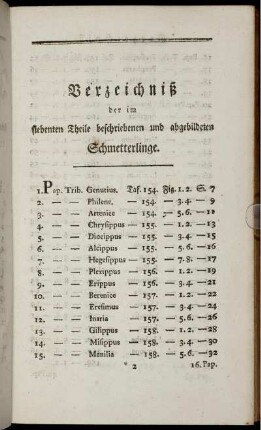 Verzeichniß
der im
siebenten Theile beschriebenen und abgebildeten
Schmetterlinge.
1. Pap. Trib. Genutius. Taf. 154. Fig. 1. 2. S. 7
2. — — Philene. — 154. — 3.4. — 9
3. — — Artenice — 154. — 5.6. — 11
4. — — Chrysippus — 155. — 1.2. — 13
5. — — Diocippus — 155. — 3.4. — 15
6. — — Alcippus — 155. — 5.6. — 16
7. — — Hegesippus — 155. — 7.8. — 17
8. — — Plexippus — 156. — 1.2. — 19
9. — — Erippus — 156. — 3.4. — 21
10. — — Berenice — 157. — 1.2. — 22
11. — — Eresimus — 157. — 3.4. — 24
12. — — Inaria — 157. — 5.6. — 26
13. — — Gilippus — 158. — 1.2. — 28
14. — — Misippus — 158. — 3.4. — 30
15. — — Mänilia — 158. — 5.6. — 32
* 2 16. Pap.